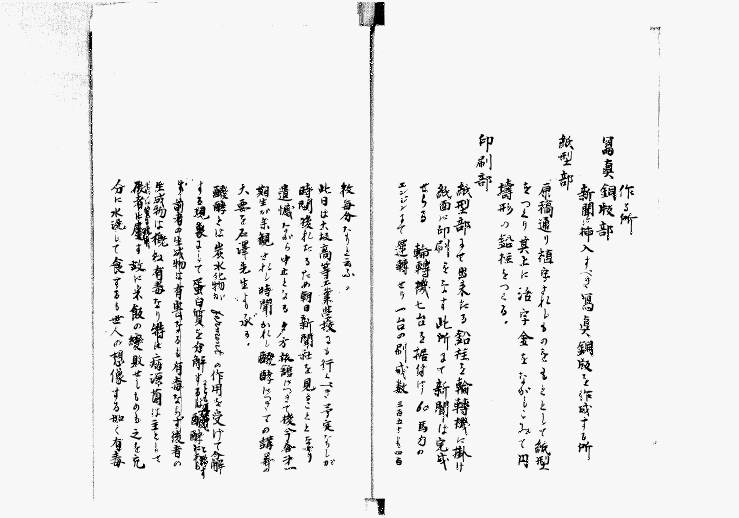 作る所
寫真銅版部
新聞に挿入すべき寫真銅版を作成する所
紙型部
原稿通り植字されしものをもととして紙型
をつくり其上に活字金をながしこみて円
墻形の鉛柱をつくる。
印刷部
紙型部まで出来たる鉛柱を輪轉機に掛け
紙面に印刷をなす此所まで新聞は完成
せらる 輪轉機七台を据付け60馬力の
エンジンにて運轉せり一台の刷成数
枚毎分なりと云ふ。
此日は大坂高等工業学校にも行くべき予定なりしが
時間後れたるため朝日新聞社を見ることとなり
遺憾ながら中止となる 夕方旅舘につきて後今
期生が参観されし時聞かれし醗酵についての講義の
大要を石澤先生より承る。
醗酵とは炭水化物が の作用を受けて分解
する現象にして蛋白質を分解するは
前者の生成物は有害なるも有毒ならず後者の
生成物は概ね有毒なり特に病源菌は主として
後者に属す故に米飯の變敗せしものも之を充
分に水洗して食するも世人の想像する如く有毒